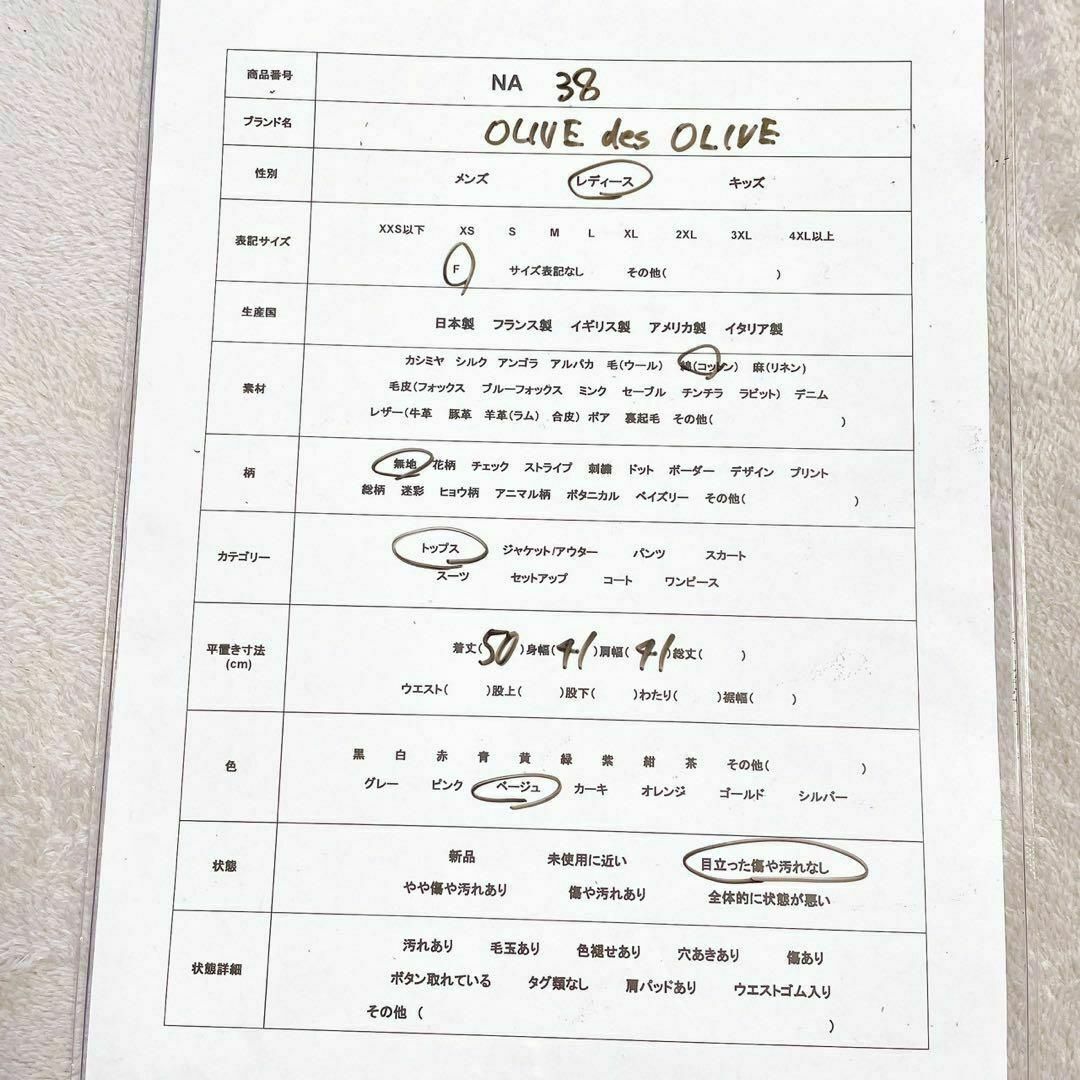 商品番号 NA 38
ブランド名 OLIVE des OLIVE
性別 メンズ レディース キッズ
XXS以下 XS S M L XL 2XL 3XL 4XL以上
表記サイズ
F サイズ表記なし その他( )
生産国 日本製 フランス製 イギリス製 アメリカ製 イタリア製
カシミヤ シルク アンゴラ アルパカ 毛(ウール) 綿(コットン) 麻(リネン)
素材 毛皮(フォックス ブルーフォックス ミンク セーブル チンチラ ラビット) デニム
レザー(牛革 豚革 羊革(ラム) 合皮) ボア 裏起毛 その他( )
柄 無地 花柄 チェック ストライプ 刺繍 ドット ボーダー デザイン プリント
総柄 迷彩 ヒョウ柄 アニマル柄 ボタニカル ペイズリー その他( )
カテゴリー トップス ジャケット/アウター パンツ スカート
スーツ セットアップ コート ワンピース
平置き寸法 着丈(50)身幅(41)肩幅(41)総丈( )
(cm)
ウエスト( )股上( )股下( )わたり( )裾幅( )
色 黒 白 赤 青 黄 緑 紫 紺 茶 その他( )
グレー ピンク ベージュ カーキ オレンジ ゴールド シルバー
状態 新品 未使用に近い 目立った傷や汚れなし
やや傷や汚れあり 傷や汚れあり 全体的に状態が悪い
状態詳細 汚れあり 毛玉あり 色褪せあり 穴あきあり 傷あり
ボタン取れている タグ類なし 肩パッドあり ウエストゴム入り
その他 ( )